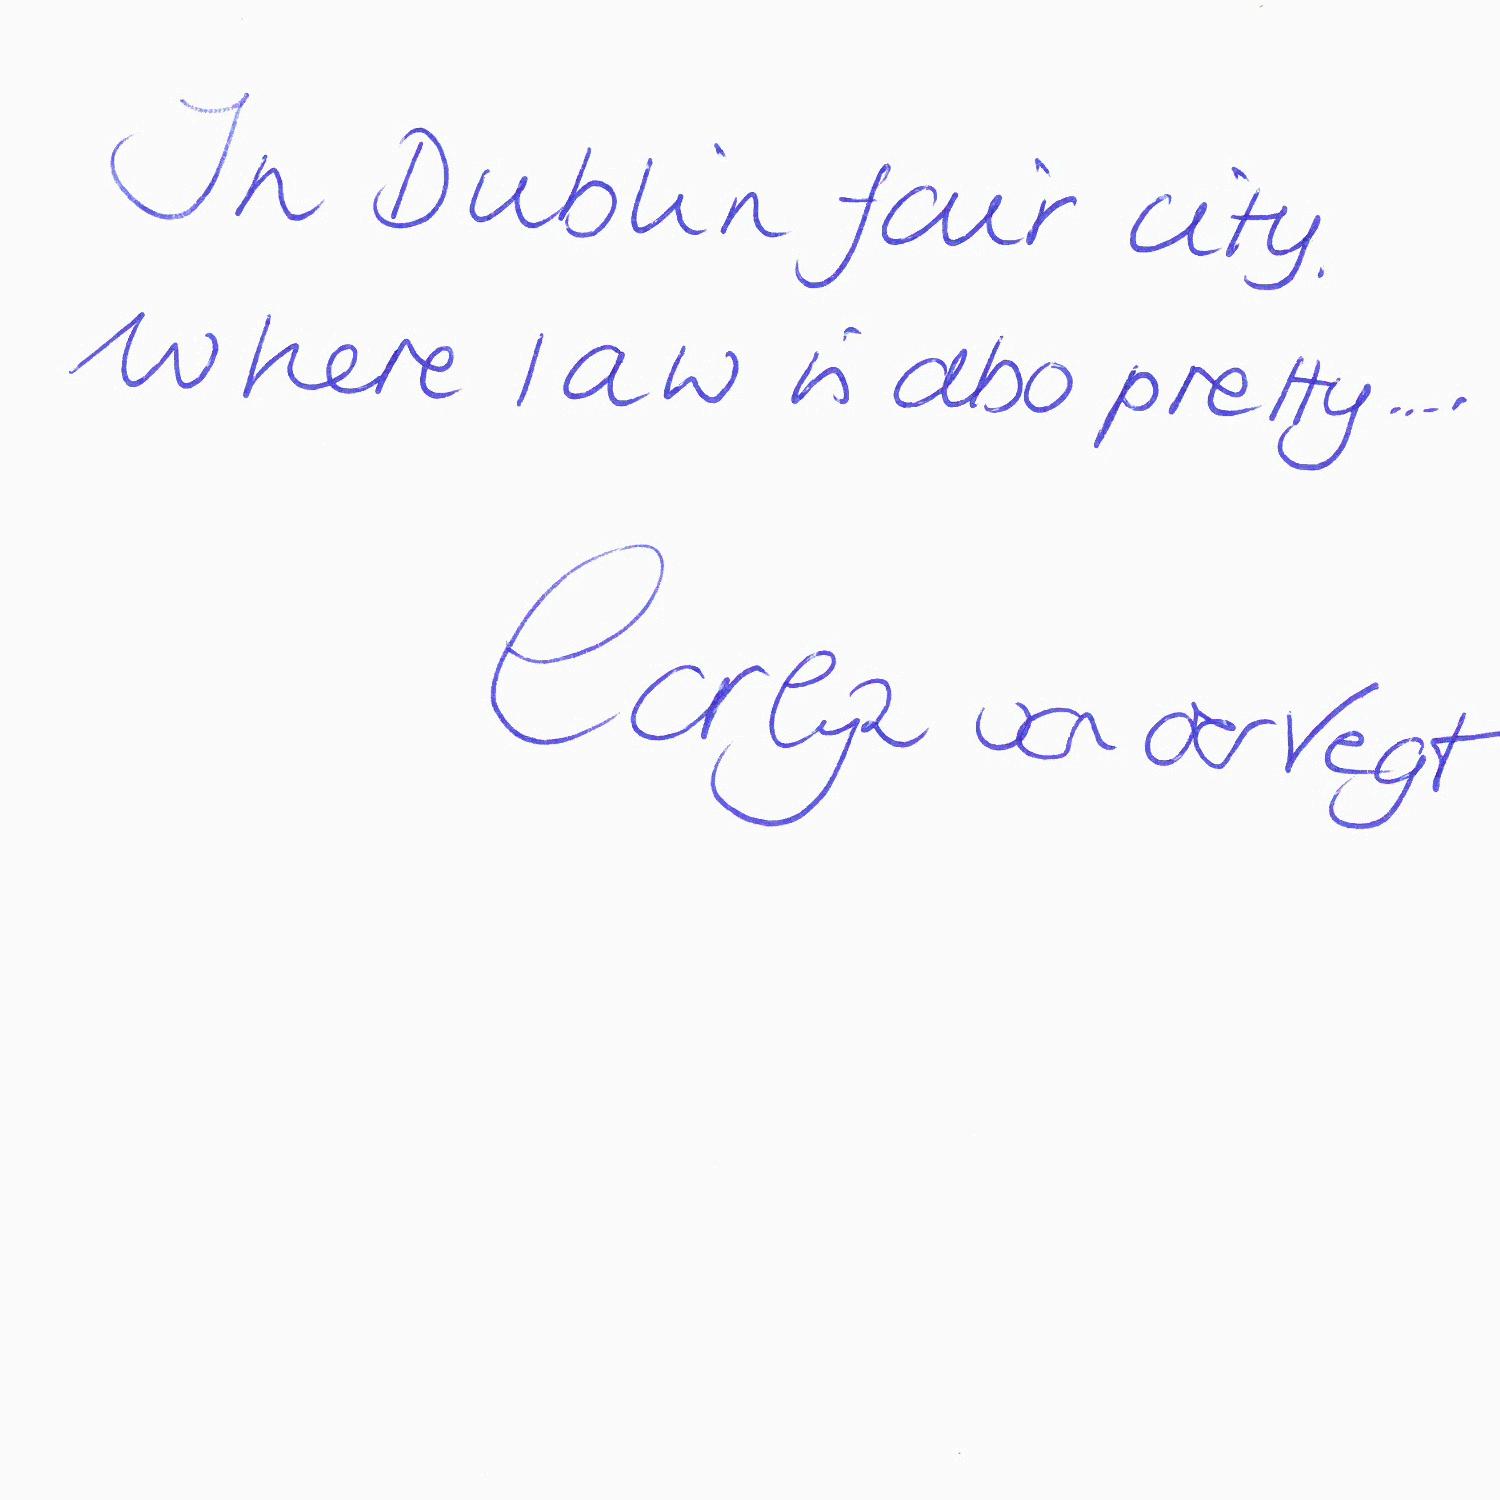 In Dublin fair city.
Where law is also pretty....
van der Vegt